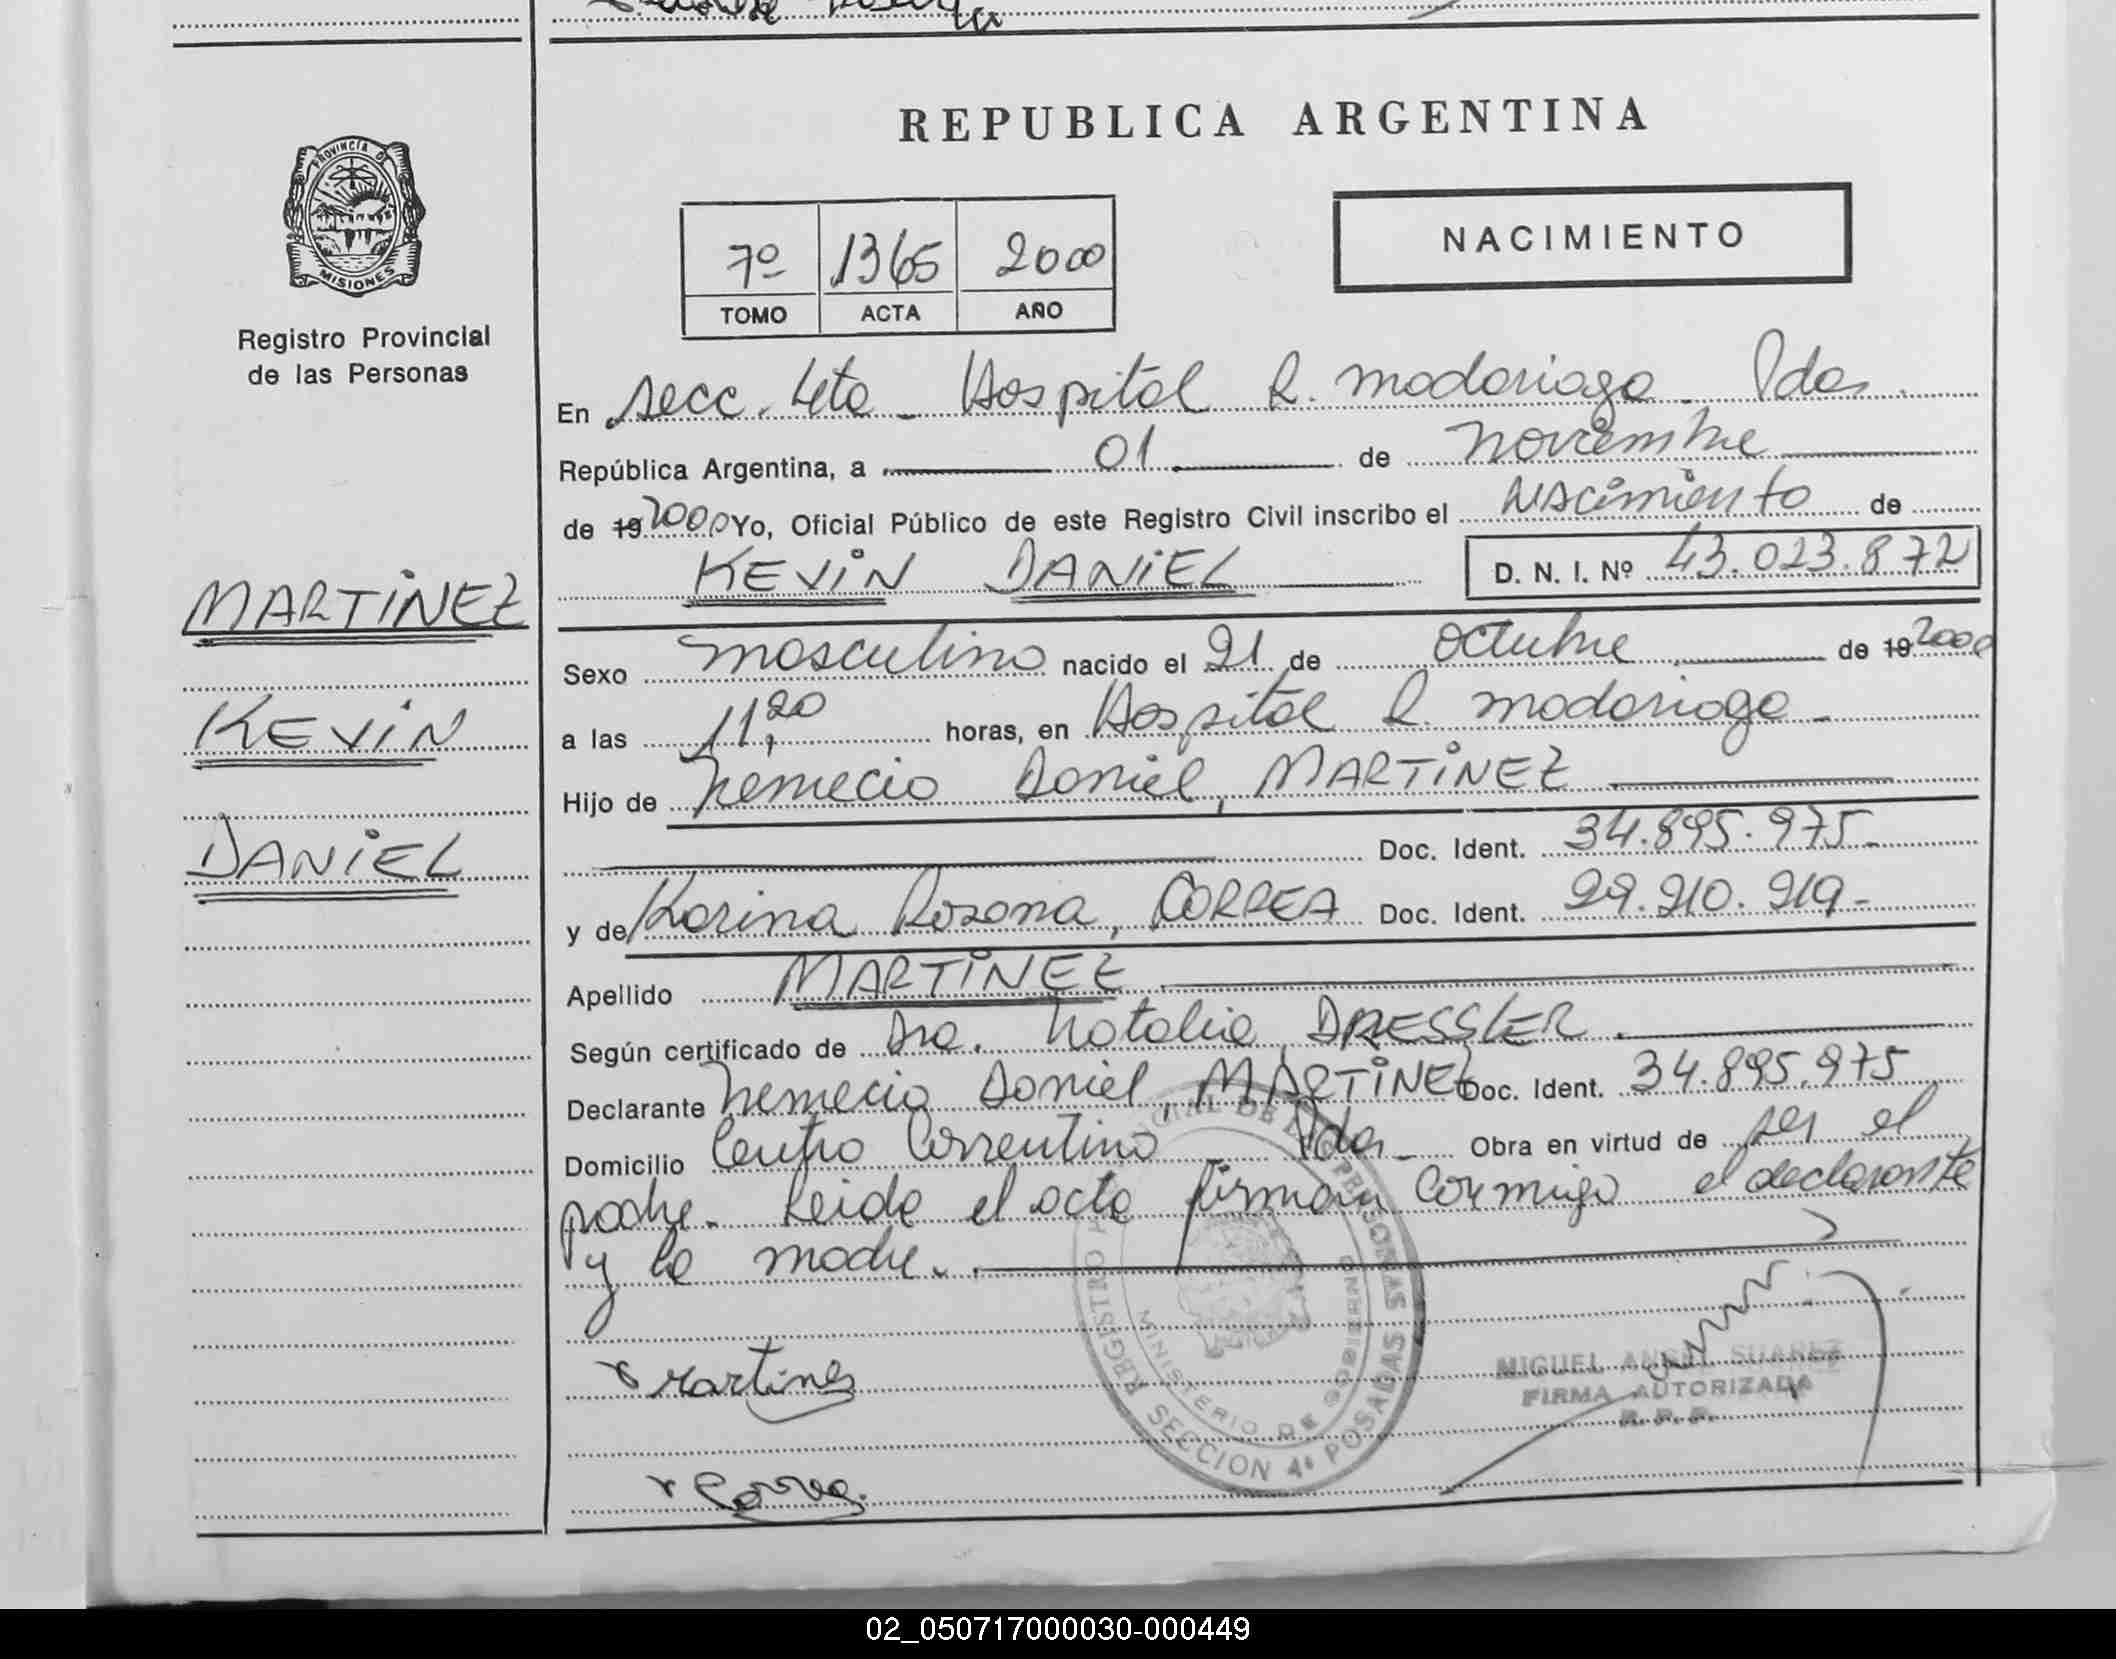 REPUBLICA ARGENTINA
PROVINCIA DE
MISIONES
Registro Provincial
de las Personas
7º 1365 2000
TOMO ACTA AÑO
NACIMIENTO
En secc. 4ta - Hospital R. Madariaga - Pdas.
República Argentina, a 01 de Noviembre
de 19 2000 Yo, Oficial Público de este Registro Civil inscribo el Nacimiento de
KEVIN DANIEL D. N. I. Nº 43.023.872
MARTINEZ
KEVIN
DANIEL
Sexo masculino nacido el 21 de octubre de 19 2000
a las 11,20 horas, en Hospital R. Madariaga -
Hijo de Nemecio Daniel, MARTINEZ
Doc. Ident. 34.895.975-
y de Karina Rosana, CORREA Doc. Ident. 29.210.219-
Apellido MARTINEZ
Según certificado de Dra. Natalia DRESSLER.
Declarante Nemecio Daniel, MARTINEZ Doc. Ident. 34.895.975
Domicilio Centro Correntino Pdas - Obra en virtud de ser el
padre. Leida el acta firman conmigo el declarante
y la madre.
REGISTRO PROVINCIAL DE LAS PERSONAS
MINISTERIO DE GOBIERNO
SECCION 4ª POSADAS
Martinez
MIGUEL ANGEL SUAREZ
FIRMA AUTORIZADA
R. P. P.
Correa
02_050717000030-000449